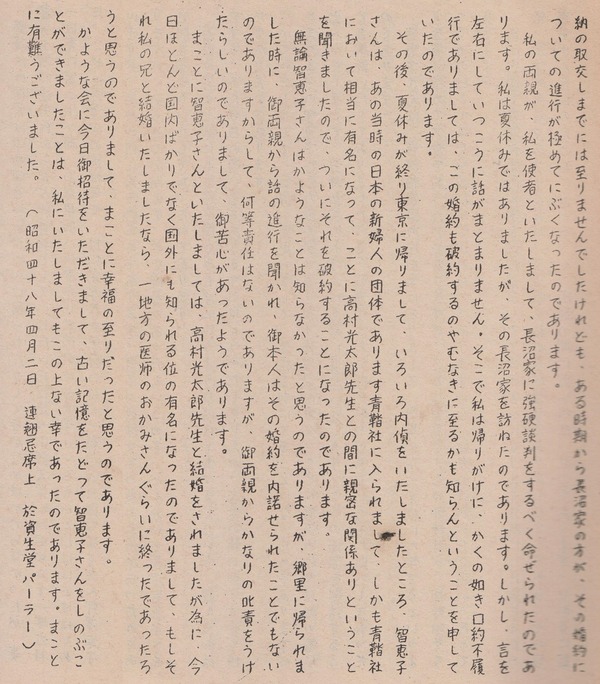 納の取交しまでには至りませんでしたけれども、ある時期から長沼家の方が、その婚約に
ついての進行が極めてにぶくなったのであります。
私の両親が、私を使者といたしまして、長沼家に強硬談判をするべく命ぜられたのであ
ります。私は夏休みではありましたが、その長沼家を訪ねたのであります。しかし、言を
左右にしていつこうに話がまとまりません。そこで私は帰りがけに、かくの如き口約不履
行でありましては、この婚約も破約するのやむなきに至るかも知らんということを申して
いたのであります。
その後、夏休みが終り東京に帰りまして、いろいろ内偵をいたしましたところ、智恵子
さんは、あの当時の日本の新婦人の団体であります青鞜社に入られまして、しかも青鞜社
において相当に有名になって、ことに高村光太郎先生との間に親密な関係ありということ
を聞きましたので、ついにそれを破約することになったのであります。
無論智恵子さんはかようなことは知らなかったと思うのでありますが、郷里に帰られま
した時に、御両親から話の進行を聞かれ、御本人はその婚約を内諾せられたことでもない
のでありますからして、何等責任はないのでありますが、御両親からかなりの叱責をうけ
たらしいのでありまして、御苦心があったようであります。
まことに智恵子さんといたしましては、高村光太郎先生と結婚をされましたが為に、今
日ほとんど国内ばかりでなく国外にも知られる位の有名になったのでありまして、もしそ
れ私の兄と結婚いたしましたなら、一地方の医師のおかみさんぐらいに終ったであったろ
うと思うのでありまして、まことに幸福の至りだったと思うのであります。
かような会に今日御招待をいただきまして、古い記憶をたどって智恵子さんをしのぶこ
とができましたことは、私にいたしましてもこの上ない幸であったのであります。まこと
に有難うございました。(昭和四十八年四月二日 連翹忌席上 於資生堂パーラー)